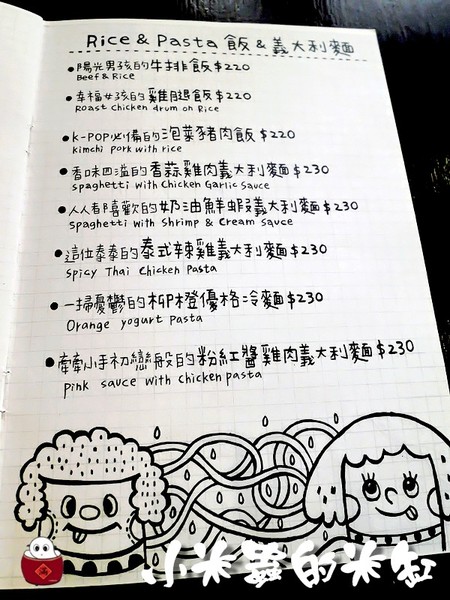 Rice & Pasta 飯 & 義大利麵
陽光男孩的牛排飯$220
Beef & Rice
幸福女孩的雞腿飯$220
Roast chicken drum on Rice
K-POP必備的泡菜豬肉飯 $220
kimchi pork with rice
香味四溢的香蒜雞肉義大利麵$230
spaghetti with Chicken Garlic Sauce
人人都喜歡的奶油鮮蝦義大利麵$230
Spaghetti with Shrimp & Cream sauce
這位泰泰的泰式辣雞義大利麵$230
Spicy Thai Chicken Pasta
一掃憂鬱的柳橙優格冷麵$230
Orange yogurt Pasta
牽牽小手初戀般的粉紅醬雞肉義大利麵$230
pink sauce with chicken pasta
小米蟲的米缸